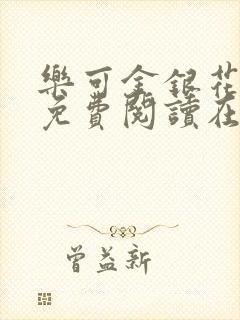 樂可金銀花
免費閱讀在
曾益新